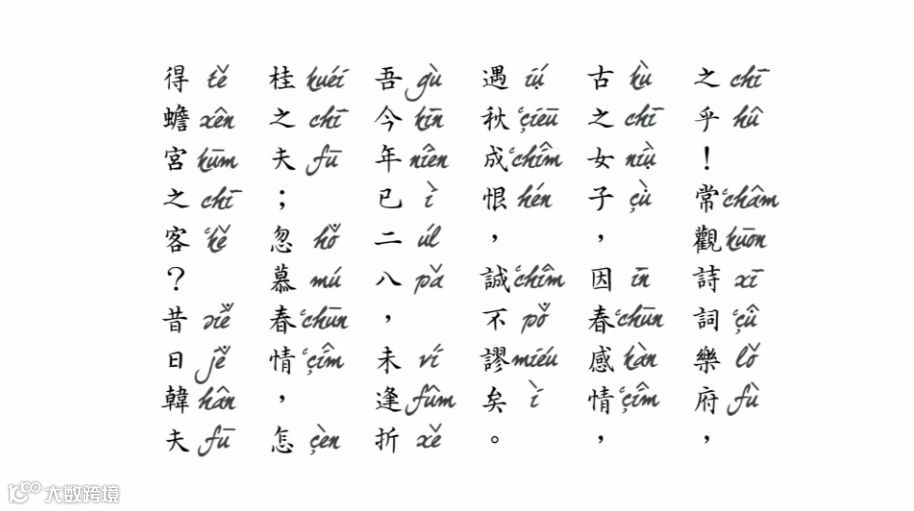 之 chī 乎 hû ! 常 ʻchâm 觀 kūon 詩 xī 詞 ʻçû̇ 樂 lŏ 府 fù ,
古 kù 之 chī 女 niụ̀ 子 çụ̀ , 因 īn 春 ʻchūn 感 kàn 情 ʻçîm ,
遇 iụ́ 秋 ʻçiēu 成 ʻchîm 恨 hén , 誠 ʻchîm 不 pŏ̇ 謬 miéu 矣 ì 。
吾 gù 今 kīn 年 niên 已 ì 二 úl 八 pă , 未 ví 逢 fûm 折 xĕ
桂 kuéi 之 chī 夫 fū ; 忽 hŏ̇ 慕 mú 春 ʻchūn 情 ʻçîm , 怎 çèn
得 tĕ 蟾 xên 宮 kūm 之 chī 客 ʻkĕ ? 昔 siĕ̇ 日 jĕ̇ 韓 hân 夫 fū
大数跨境